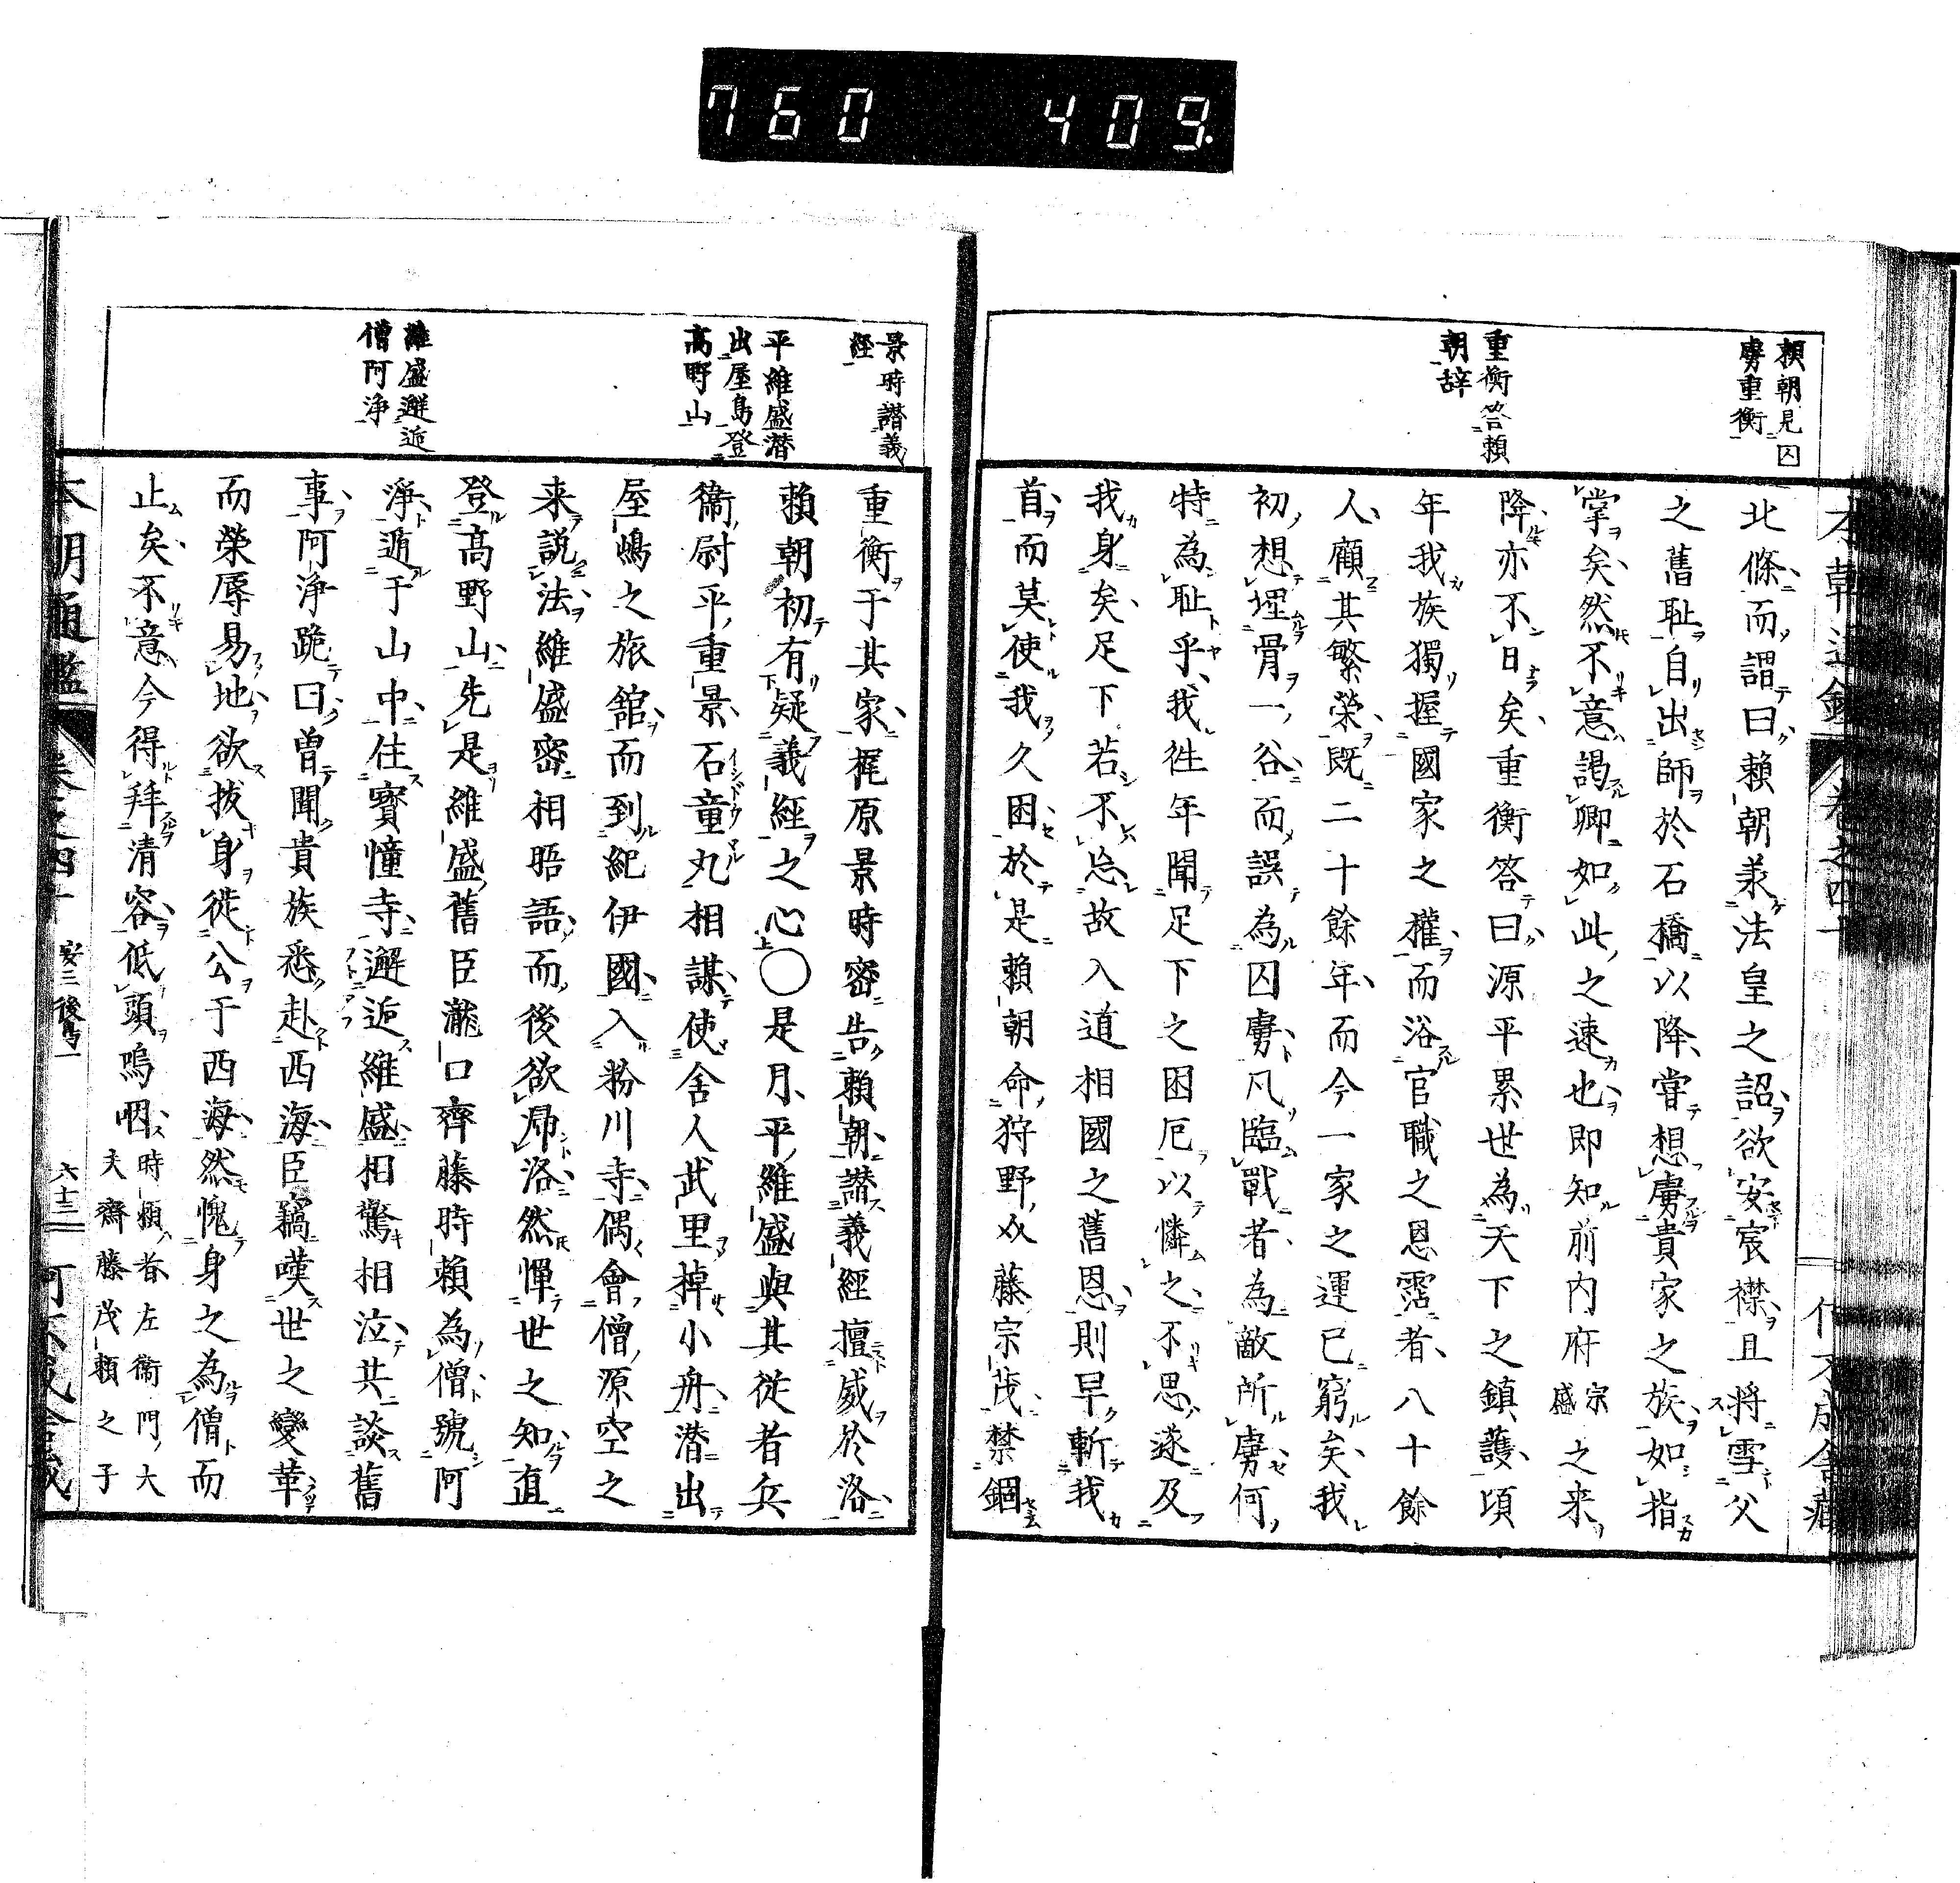 760 409
頼朝見囚
虜重衡
重衡答頼
朝辞
北條而謂曰頼朝羕法皇之詔欲安宸襟且將雪父
之舊耻自出師於石橋以降嘗想虜貴家之族如指
掌矣然不意謁卿如此之速也即知前内府宗盛之来
降亦不日矣重衡答曰源平累世為天下之鎮護頃
年我族獨握國家之權而浴官職之恩霑者八十餘
人顧其繁榮既二十餘年而今一家之運已窮矣我
初想埋骨一谷而誤為囚虜凡臨戰者為敵所虜何
特為耻乎我徃年聞足下之困厄以憐之不思遂及
我身矣足下若不忘故入道相國之舊恩則早斬我
首而莫使我久困於是頼朝命狩野介藤宗茂禁錮
景時譖義
経
平維盛潜
出屋島登
高野山
維盛邂逅
僧阿浄
重衡于其家梶原景時密告頼朝譖義經擅威於洛
頼朝初有疑義經之心〇是月平維盛與其従者兵
衞尉平重景石童丸相謀使舎人武里棹小舟潜出
屋嶋之旅舘而到紀伊國入粉川寺偶會僧源空之
来説法維盛密相晤語而後欲帰洛然憚世之知直
登高野山先是維盛舊臣瀧口齊藤時頼為僧號阿
淨遁于山中住寳幢寺邂逅維盛相驚相泣共談舊
事阿浄跪曰曽聞貴族悉赴西海臣竊嘆世之變革
而榮辱易地欲抜身徙公于西海然愧身之為僧而
止矣不意今得拜清容低頭嗚咽時頼者左衞門大
夫齋藤茂頼之子
本朝通鑑 卷之四十 安三 後鳥一 六十三